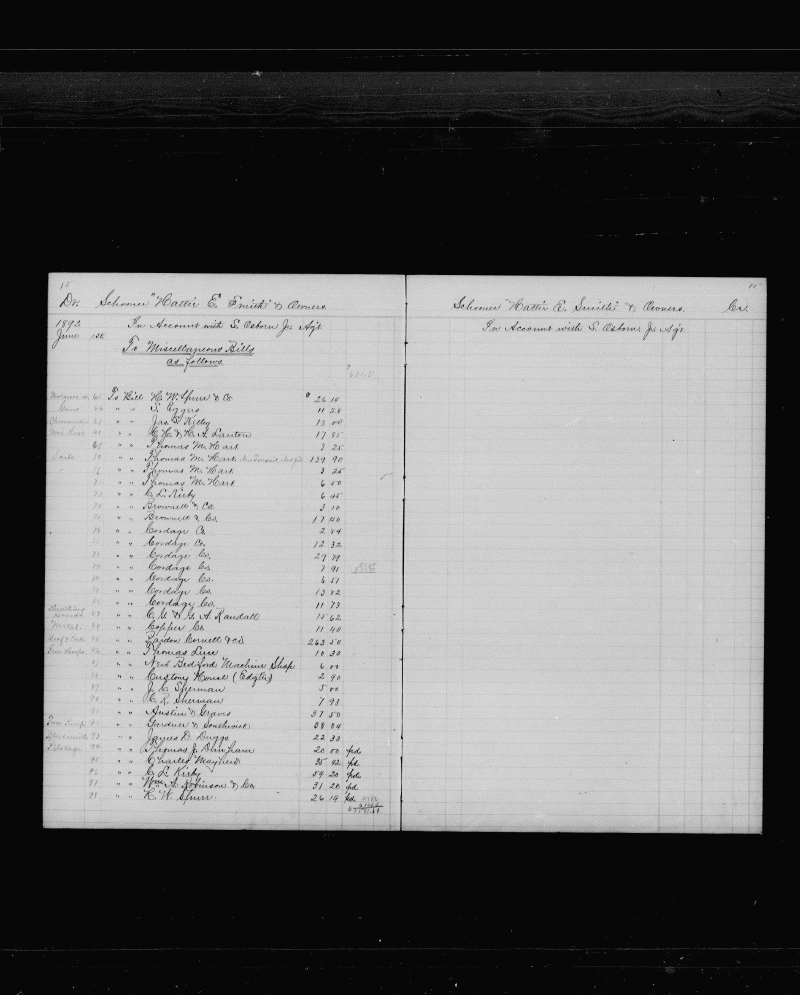 15
Dr. Schooner "Hattie E. Smith" & Owners.
1892 In Account with S. Osborn Jr. Ag't
June 1st
To Miscellaneous Bills
as follows
65 To Bill H. W. Spurr & Co $ 26 10
66 " " S. Eggers 11 28
67 " " Jas. E. Kelley 13 00
" " & H. A. Lawton 17 85
69 " " Thomas M. Hart 3 25
Sails 70 " " Thomas M. Hart 139 90
" " Thomas M. Hart 3 25
" " Thomas M. Hart 6 50
" " C. L. Kirby 6 45
" " Brownell & Co. 3 10
" " Brownell & Co. 17 40
76 " " Cordage Co. 2 84
" " Cordage Co. 12 32
78 " " Cordage Co. 29 79
79 " " Cordage Co. 7 91
80 " " Cordage Co. 6 51
" " Cordage Co. 13 82
" " Cordage Co. 11 73
83 " " C. G. & G. A. Randall 15 62
Metal 84 " " Copper Co 11 40
85 " " Cornell & Co 263 50
86 " " Thomas Luce 10 30
87 " " New Bedford Machine Shop 6 00
88 " " Customs House (Edg'tn) 2 90
89 " " Sherman 5 00
90 " " C. R. Sherman 7 93
" " Austin & Graves 37 50
" " Gardner &
93 " " James D. Driggs 22 33
Pilotage 94 " " Thomas J. Dunham 20 00 pd
95 " " Charles Mayfield 35 42 pd
96 " " C. L. Kirby 54 20 pd
97 " " Wm. A. Robinson & Co. 31 20 pd
98 " " H. W. Spurr. 26 14 pd
15
Schooner "Hattie E. Smith" & Owners. Cr.
In Account with S. Osborn Jr. Ag't